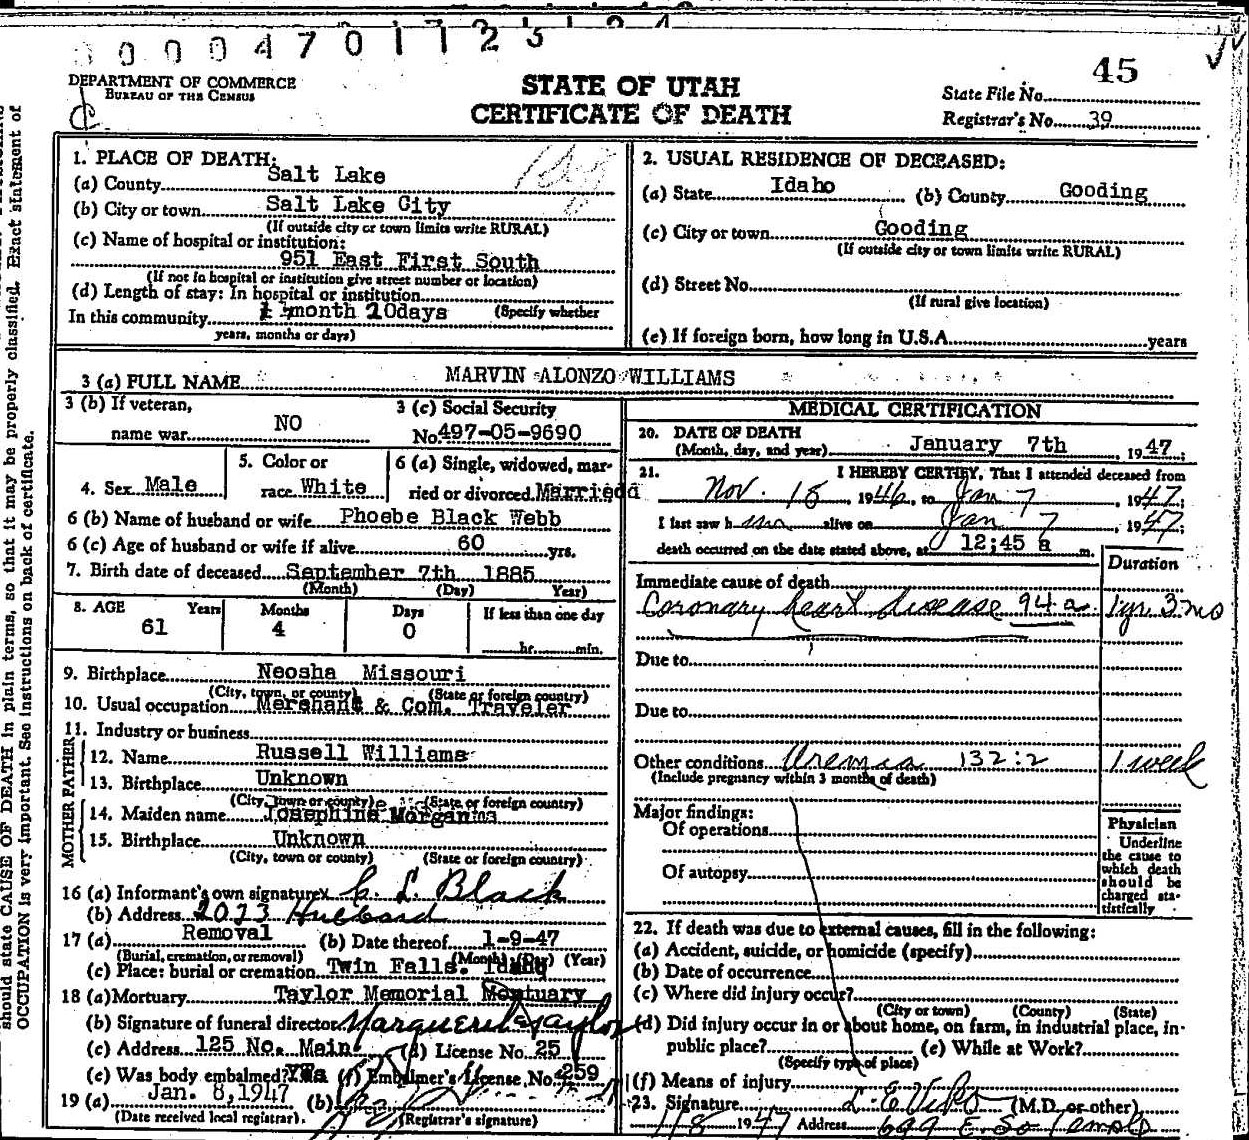 0 0 0 4 7 0 1 1 2 5
DEPARTMENT OF COMMERCE
BUREAU OF THE CENSUS
STATE OF UTAH
CERTIFICATE OF DEATH
45
State File No.
Registrar's No. 39
1. PLACE OF DEATH:
(a) County Salt Lake
(b) City or town Salt Lake City
(If outside city or town limits write RURAL)
(c) Name of hospital or institution:
951 East First South
(If not in hospital or institution give street number or location)
(d) Length of stay: In hospital or institution
In this community month 20days (Specify whether
years, months or days)
2. USUAL RESIDENCE OF DECEASED:
(a) State Idaho (b) County Gooding
(c) City or town Gooding
(If outside city or town limits write RURAL)
(d) Street No.
(If rural give location)
(e) If foreign born, how long in U.S.A. years
3 (a) FULL NAME MARVIN ALONZO WILLIAMS
3 (b) If veteran,
name war NO
3 (c) Social Security
No. 497-05-9690
4. Sex Male
5. Color or
race White
6 (a) Single, widowed, mar-
ried or divorced Married
6 (b) Name of husband or wife Phoebe Black Webb
6 (c) Age of husband or wife if alive 60 yrs.
7. Birth date of deceased September 7th 1885
(Month) (Day) Year)
8. AGE Years Months Days If less than one day
61 4 0 hr. min.
9. Birthplace Neosha Missouri
(City, town, or county) (State or foreign country)
10. Usual occupation Merchant & Com. Traveler
11. Industry or business
FATHER
12. Name Russell Williams
13. Birthplace Unknown
(City, town or county) (State or foreign country)
MOTHER
14. Maiden name Josephine Morgan
15. Birthplace Unknown
(City, town or county) (State or foreign country)
16 (a) Informant's own signature C. L. Black
(b) Address 2023 Hubbard
17 (a) Removal (b) Date thereof 1-9-47
(Burial, cremation, or removal) (Month) (Day) (Year)
(c) Place: burial or cremation Twin Falls. Idaho
18 (a) Mortuary Taylor Memorial Mortuary
(b) Signature of funeral director Marguerite Taylor
(c) Address 125 No. Main (d) License No. 25
(e) Was body embalmed? Yes (f) Embalmer's License No. 259
19 (a) Jan. 8, 1947 (b)
(Date received local registrar). (Registrar's signature)
MEDICAL CERTIFICATION
20. DATE OF DEATH
(Month, day, and year) January 7th, 1947;
21. I HEREBY CERTIFY, That I attended deceased from
Nov. 18, 1946, to Jan 7, 1947;
I last saw h im alive on Jan 7, 1947;
death occurred on the date stated above, at 12;45 a m.
Duration
Immediate cause of death
Coronary heart disease 94 a. 1 yr. 3 mo
Due to
Due to
Other conditions Uremia 132:2 1 week
(Include pregnancy within 3 months of death)
Major findings:
Of operations
Of autopsy
Physician
Underline
the cause to
which death
should be
charged sta-
tistically
22. If death was due to external causes, fill in the following:
(a) Accident, suicide, or homicide (specify)
(b) Date of occurrence
(c) Where did injury occur?
(City or town) (County) (State)
(d) Did injury occur in or about home, on farm, in industrial place, in-
public place? (e) While at Work?
(Specify type of place)
(f) Means of injury
23. Signature (M.D. or other)
1/8 1947 Address 699 E. So Temple
should state CAUSE OF DEATH in plain terms, so that it may be properly classified. Exact statement of
OCCUPATION is very important. See instructions on back of certificate.